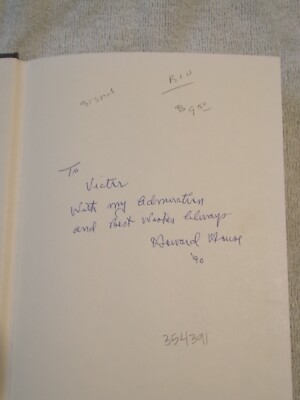 Signed
To
Victor
With my Admiration
and Best Wishes Always
Howard
'90
354391